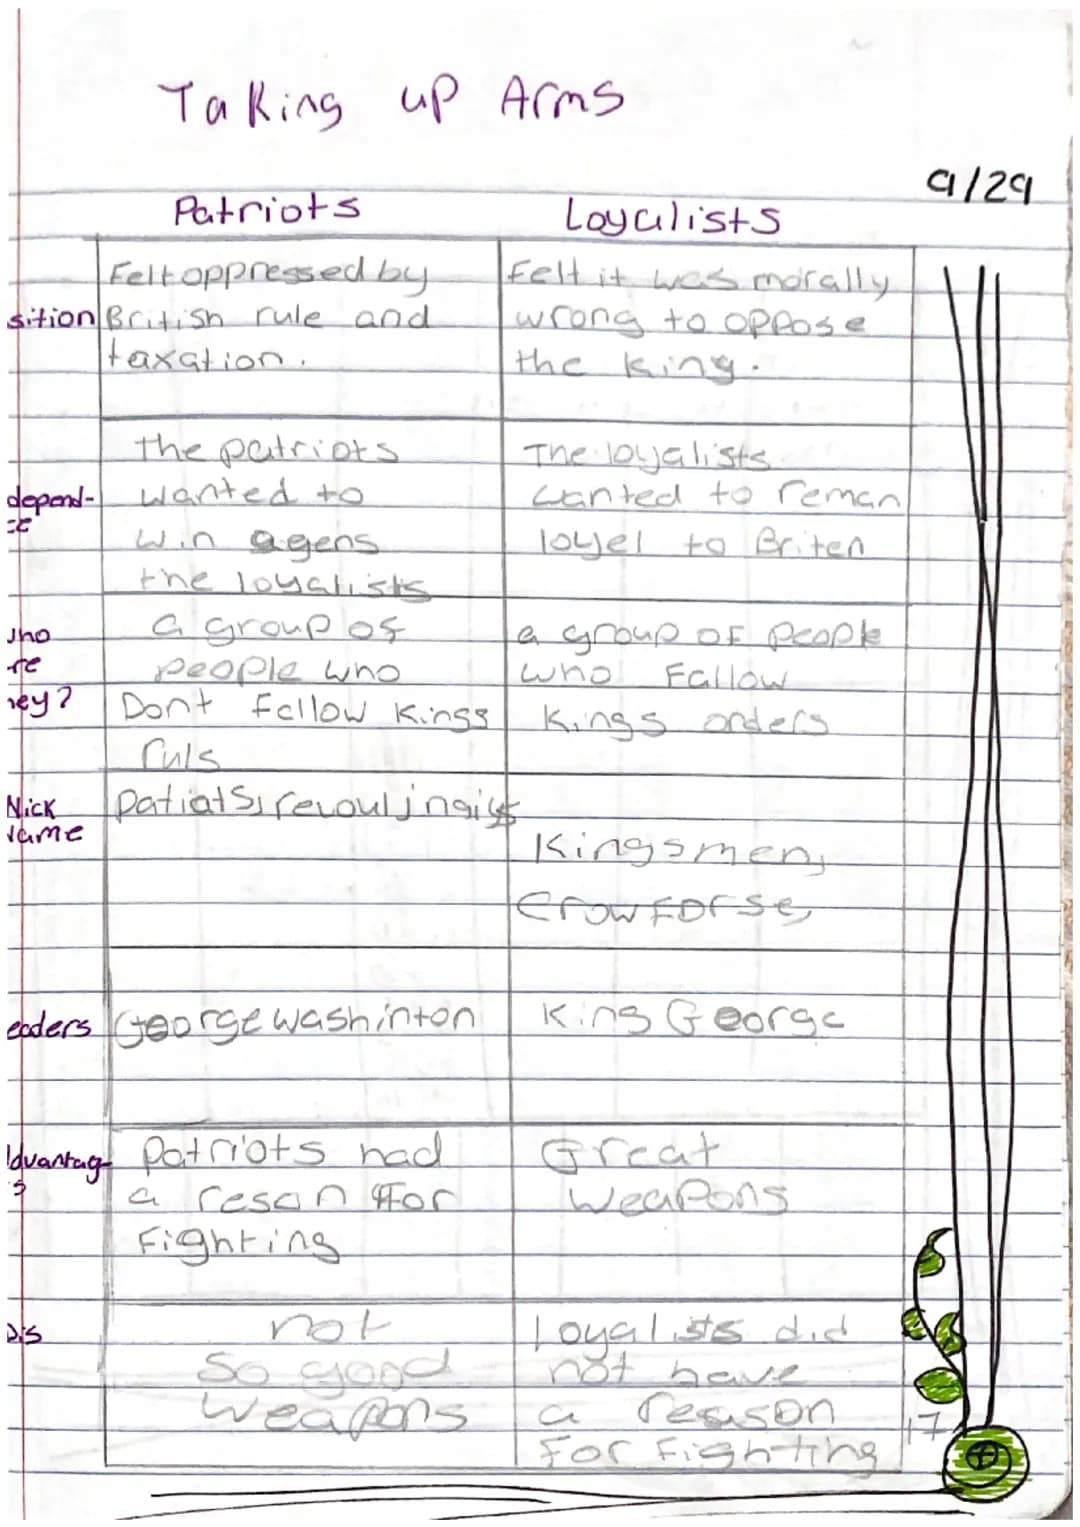 Taking up Arms
9/29
Patriots
Loyalists
sition
Felt oppressed by
British rule and
taxation.
Felt it was morally
wrong to oppose
the king.
depend-
ce
the patriots
wanted to
win agens
the loyalists
The loyalists
wanted to reman
loyel to Briten
who
re
hey?
a group of
people who
Dont fallow kings
ruls
a group of people
who Fallow
Kings orders
Nick
Name
Patiats, revouljnaiys
Kingsmen,
Crow Forse,
eaders
George washinton
King George
Advantag-
s
Patriots had
a resan for
Fighting
Great
Weapons
Dis
not
so good
weapons
Loyalists did
not have
a reason
for Fighting
17